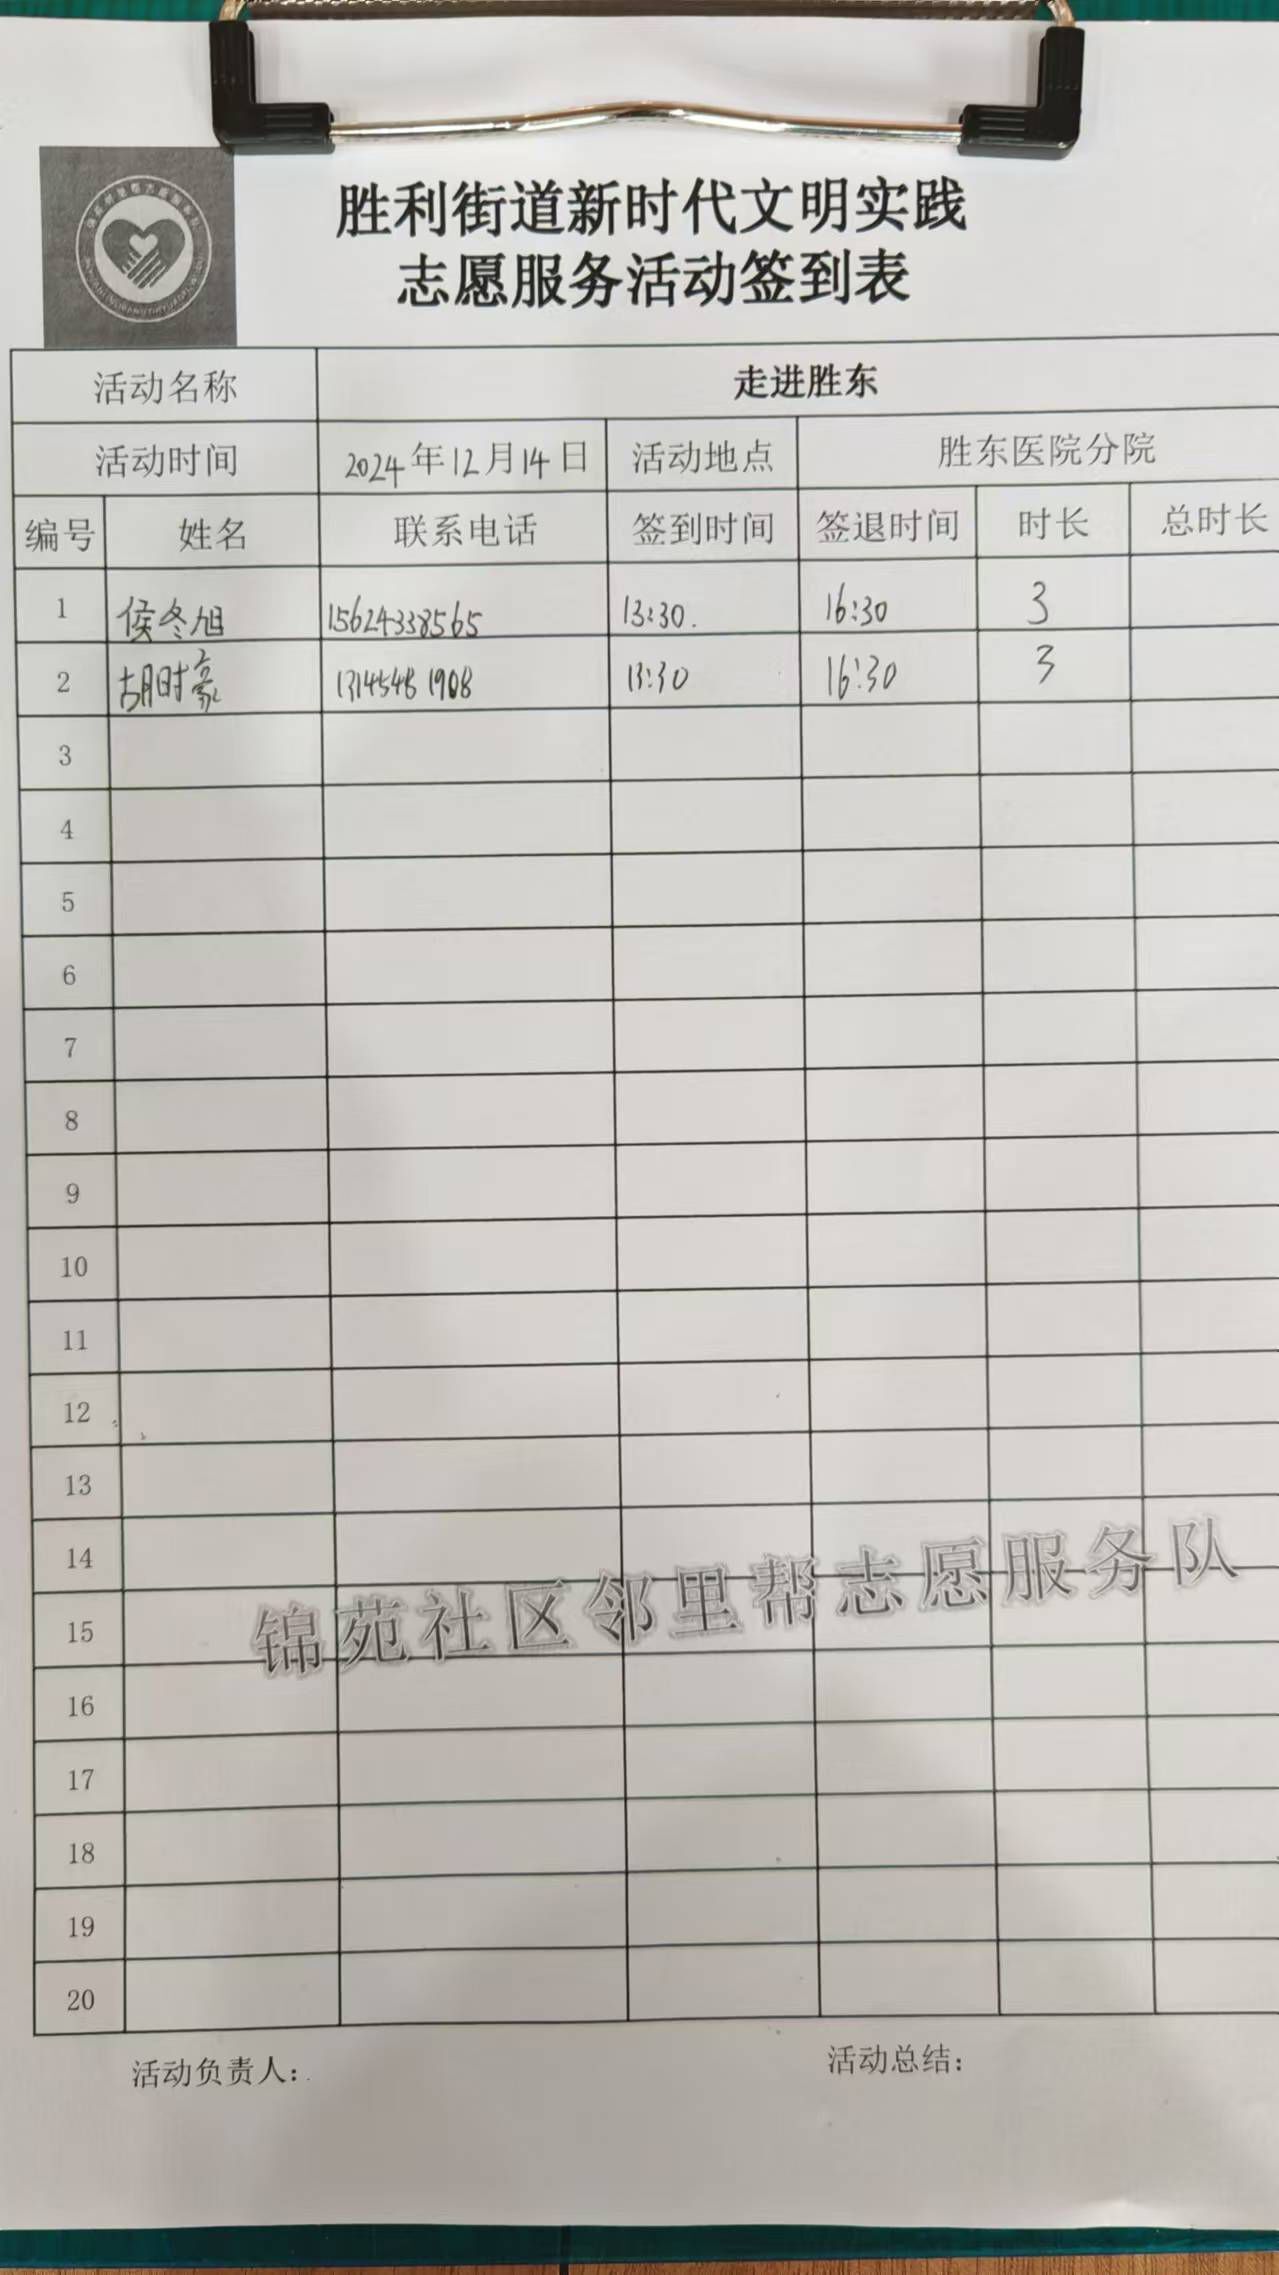 胜利街道新时代文明实践
志愿服务活动签到表
活动名称 走进胜东
活动时间 2024年12月14日 活动地点 胜东医院分院
编号 姓名 联系电话 签到时间 签退时间 时长 总时长
1 侯冬旭 15624338565 13:30. 16:30 3
2 胡时豪 13145481908 13:30 16:30 3
3
4
5
6
7
8
9
10
11
12
13
14
15
16
17
18
19
20
锦苑社区邻里帮志愿服务队
活动负责人: 活动总结: